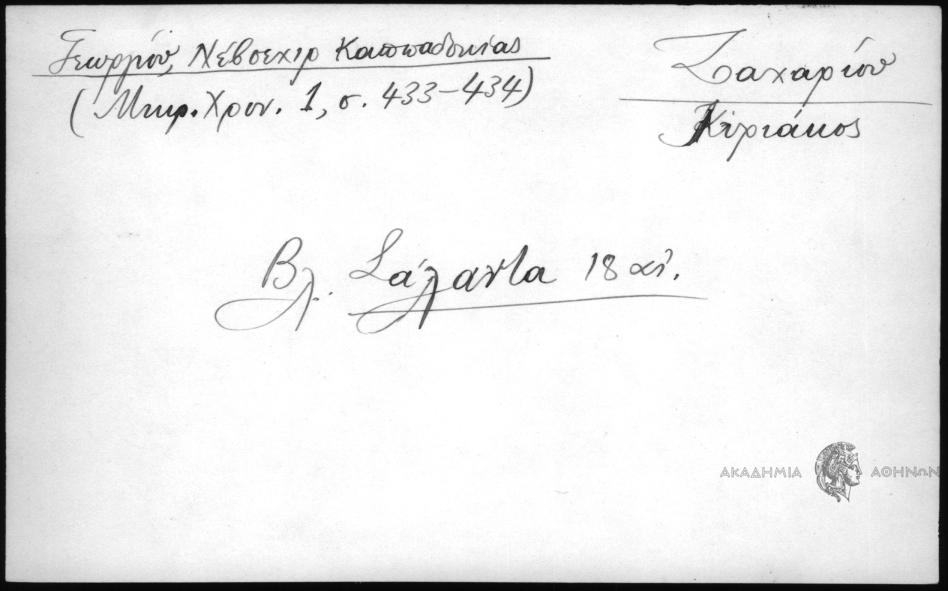 Γεωργίου, Νέβσεχιρ Καππαδοκίας
(Μικρ. Χρον. 1, σ. 433-434)
Ζαχαρίου
Κιριάκος
Βλ. Σάλαντα 18 αἰ.
ΑΚΑΔΗΜΙΑ ΑΘΗΝΩΝ